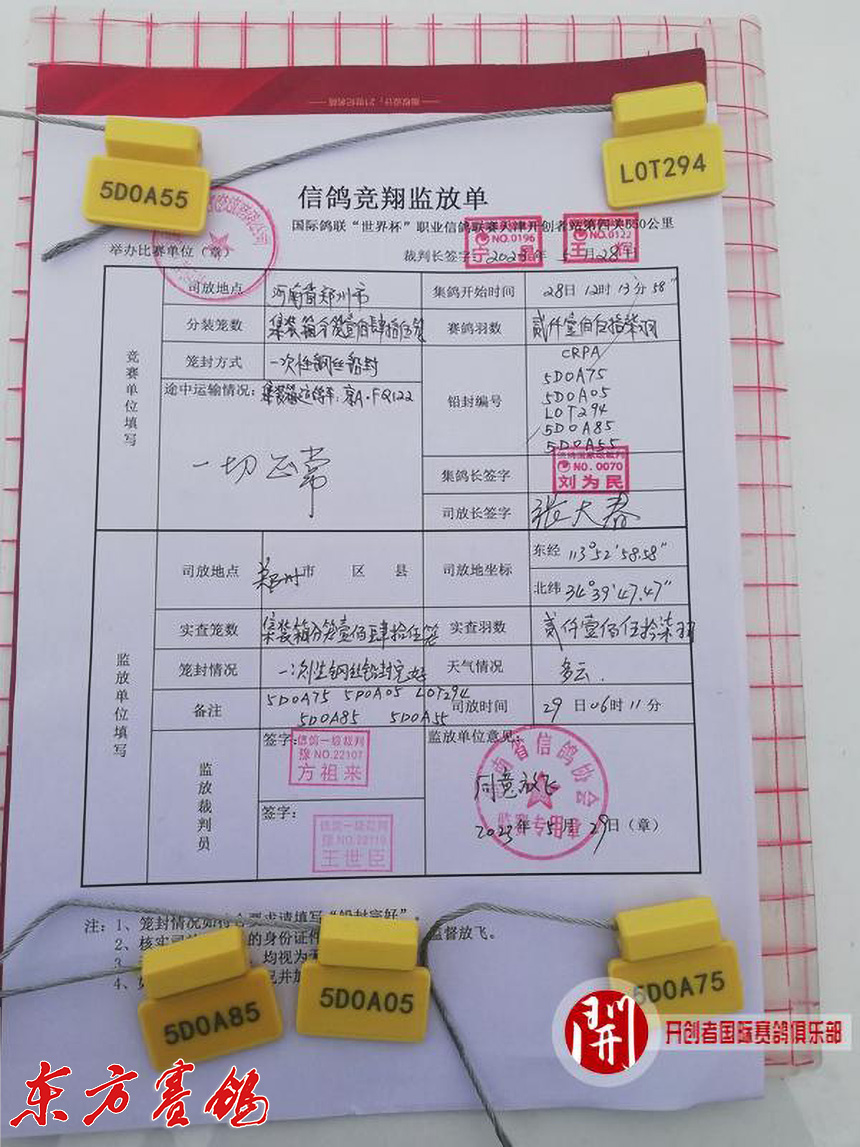 5D0A55
LOT294
信鸽竞翔监放单
国际鸽联“世界杯”职业信鸽联赛天津开创者站第四关550公里
举办比赛单位（章）
裁判长签字：
NO.0196
NO.0122
王辉
2023年5月28日
竞赛单位填写
司放地点 河南省郑州市
集鸽开始时间 28日12时13分58"
分装笼数 集装箱分笼壹佰肆拾伍笼
赛鸽羽数 贰仟壹佰伍拾柒羽
笼封方式 一次性钢丝铅封
途中运输情况：
一切正常
铅封编号
CRPA
5D0A75
5D0A05
LOT294
5D0A85
5D0A55
集鸽长签字
NO.0070
刘为民
司放长签字 张大春
监放单位填写
司放地点 郑州市 区 县
司放地坐标
东经 113°52'58.58"
北纬 34°39'47.47"
实查笼数 集装箱分笼壹佰肆拾伍笼
实查羽数 贰仟壹佰伍拾柒羽
笼封情况 一次性钢丝铅封完好
天气情况 多云.
备注 5D0A75 5D0A05 LOT294
5D0A85 5D0A55
司放时间 29日06时11分
监放裁判员
签字：
信鸽一级裁判
豫NO.22107
方祖来
签字：
信鸽一级裁判
王世臣
监放单位意见：
省信鸽协会
同意放飞
监赛专用章
2023年5月29日（章）
注：1、笼封情况如符合要求请填写“铅封完好”。
2、核实司 的身份证件 监督放飞。
3、 均视为
4、
5D0A85
5D0A05
5D0A75
開
开创者国际赛鸽俱乐部
东方赛鸽